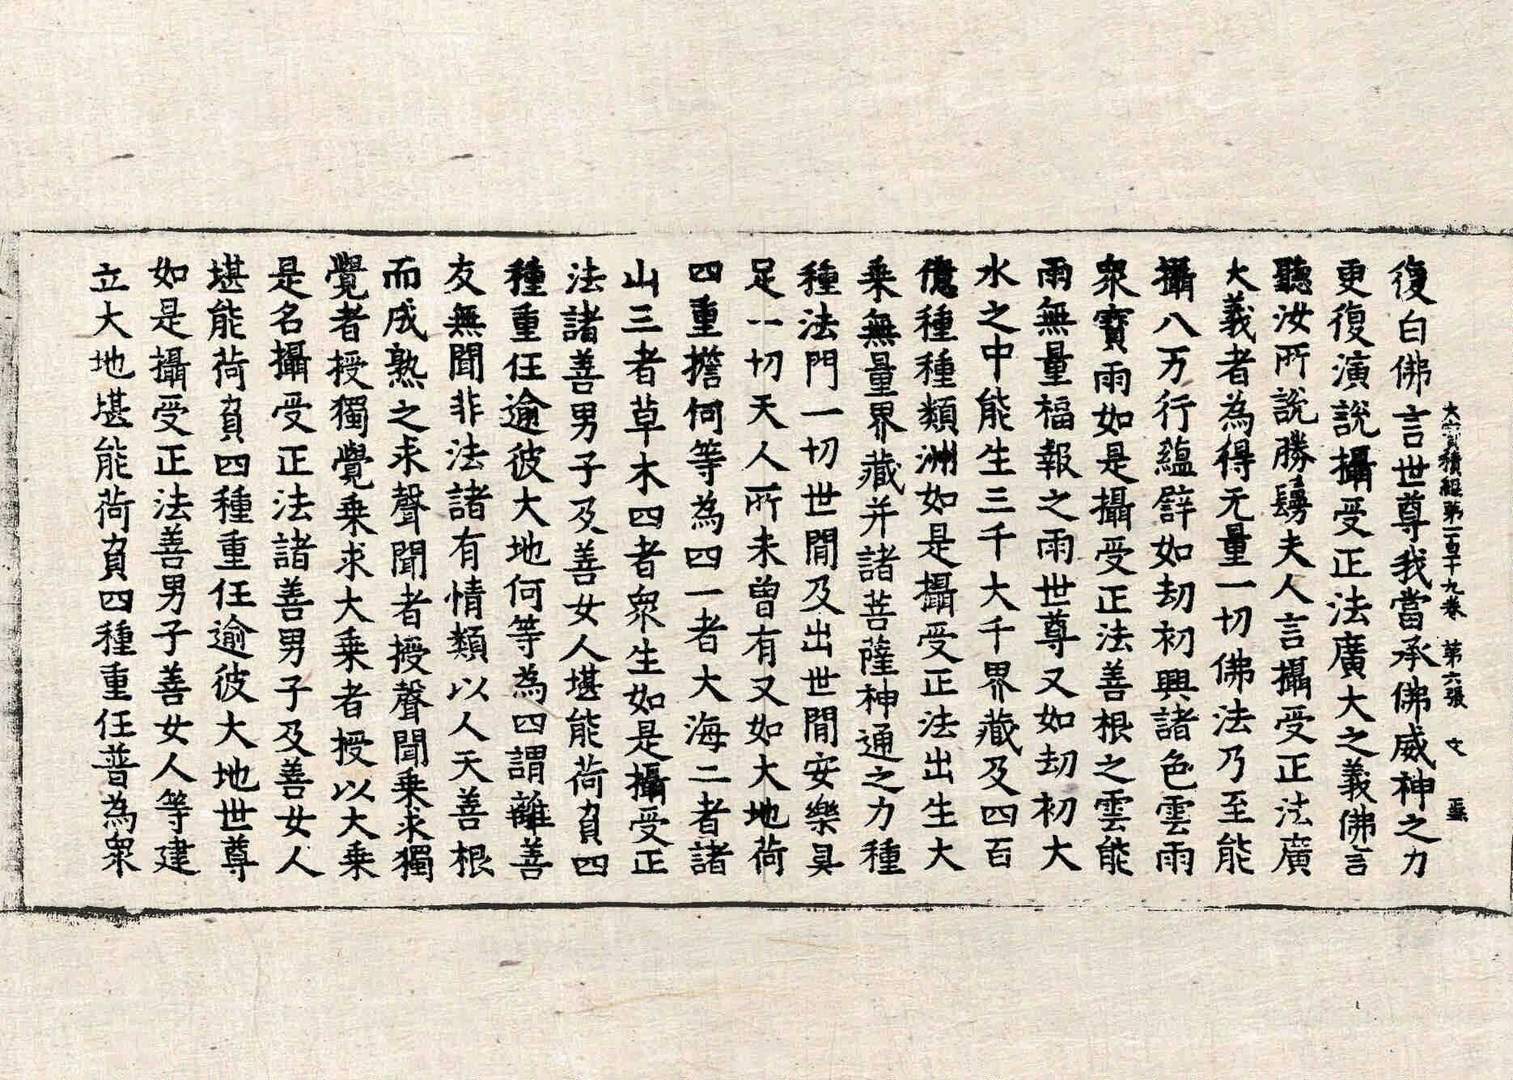 大寶積經第一百十九卷 第六張 文
復白佛言世尊我當承佛威神之力
更復演說攝受正法廣大之義佛言
聽汝所說勝鬘夫人言攝受正法廣
大義者為得无量一切佛法乃至能
攝八万行蘊譬如劫初興諸色雲雨
衆寶雨如是攝受正法善根之雲能
雨無量福報之雨世尊又如劫初大
水之中能生三千大千界藏及四百
億種種類洲如是攝受正法出生大
乘無量界藏并諸菩薩神通之力種
種法門一切世間及出世間安樂具
足一切天人所未曾有又如大地荷
四重擔何等為四一者大海二者諸
山三者草木四者衆生如是攝受正
法諸善男子及善女人堪能荷負四
種重任逾彼大地何等為四謂離善
友無聞非法諸有情類以人天善根
而成熟之求聲聞者授聲聞乘求獨
覺者授獨覺乘求大乘者授以大乘
是名攝受正法諸善男子及善女人
堪能荷負四種重任逾彼大地世尊
如是攝受正法善男子善女人等建
立大地堪能荷負四種重任普為衆